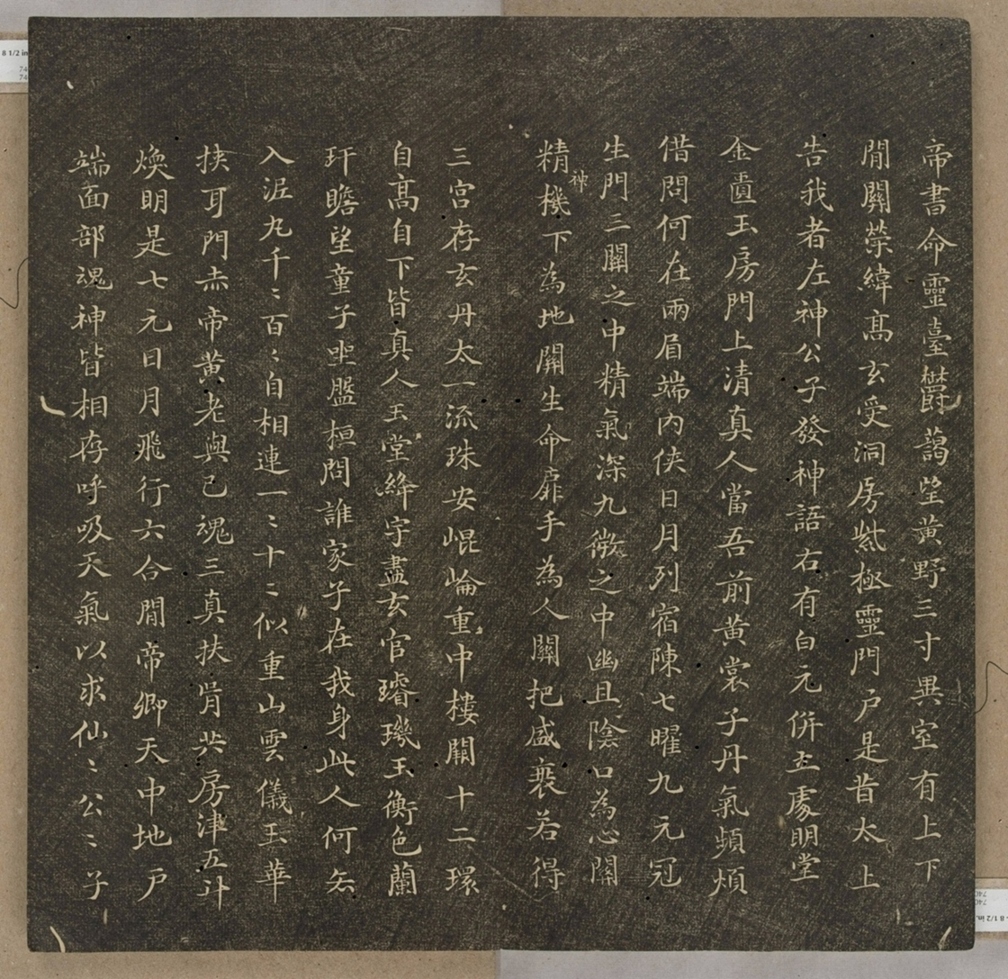 帝書命靈臺欝藹望黃野三寸異室有上下
閒關榮緯高玄受洞房紫極靈門戶是昔太上
告我者左神公子發神語右有白元併立處明堂
金匱玉房門上清真人當吾前黃裳子丹氣頻煩
借問何在兩眉端內俠日月列宿陳七曜九元冠
生門三關之中精氣深九微之中幽且陰口為心關
精神機下為地關生命扉手為人關把盛衰若得
三宮存玄丹太一流珠安崐崘重中樓閣十二環
自高自下皆真人玉堂絳宇盡玄宮璿璣玉衡色蘭
玕瞻望童子坐盤桓問誰家子在我身此人何去
入泥丸千〻百〻自相連一〻十〻似重山雲儀玉華
挾耳門赤帝黃老與己魂三真扶胥共房津五斗
煥明是七元日月飛行六合間帝卿天中地戶
端面部魂神皆相存呼吸天氣以求仙〻公〻子